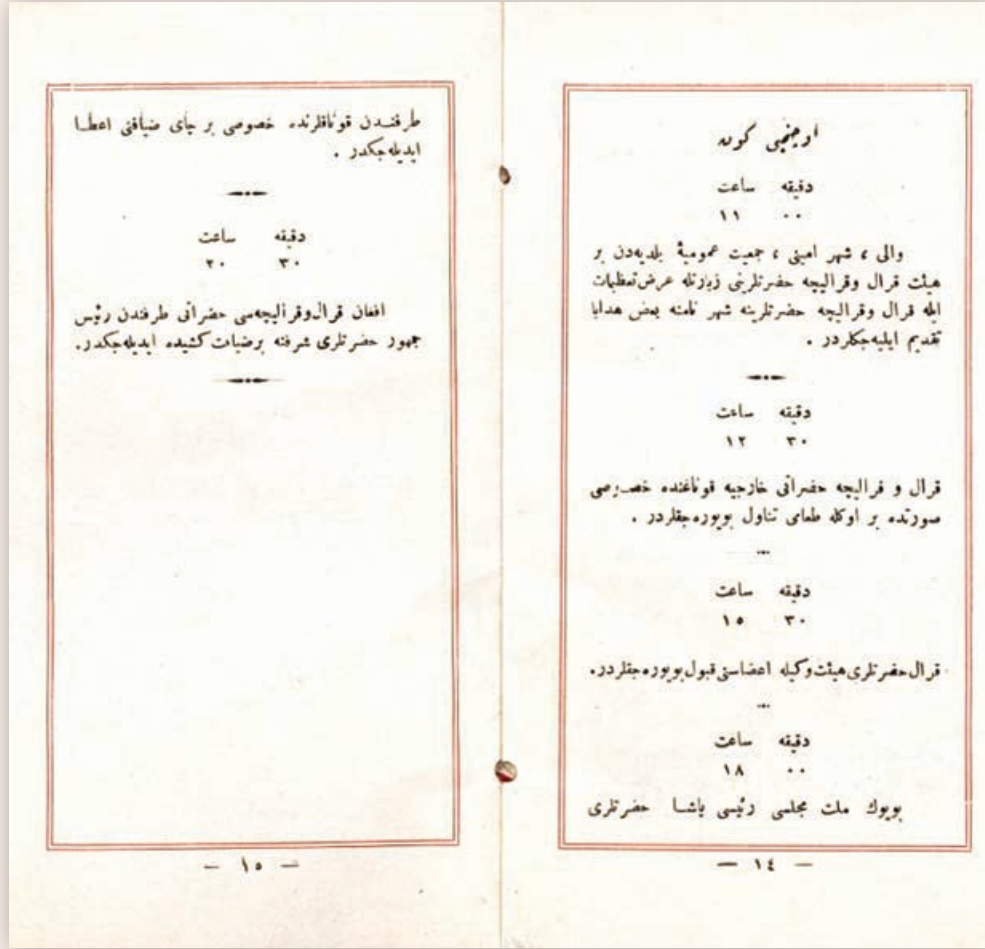 اوچنجی گون
دقیقه ساعت
٠٠ ١١
والی ، شهر امینی ، جمعیت عمومیهٔ بلدیه‌دن بر
هیئت قرال وقرالیچه حضرتلرینی زیارتله عرض تعظیمات
ایله قرال وقرالیچه حضرتلرینه شهر نامنه بعض هدایا
تقدیم ایلیه‌جکلردر .
دقیقه ساعت
٣٠ ١٢
قرال و قرالیچه حضراتی خارجیه قوناغنده خصوصی
صورتده بر اوکله طعامی تناول بویوره‌جقلردر .
دقیقه ساعت
٣٠ ١٥
قرال حضرتلری هیئت وکیله اعضاسنی قبول بویوره‌جقلردر.
دقیقه ساعت
٠٠ ١٨
بویوك ملت مجلسی رئیسی پاشا حضرتلری
— ١٤ —
طرفندن قوناقلرنده خصوصی بر چای ضیافتی اعطا
ایدیله‌جکدر .
دقیقه ساعت
٣٠ ٢٠
افغان قرال وقرالیچه‌سی حضراتی طرفندن رئیس
جمهور حضرتلری شرفنه برضیافت کشیده ایدیله‌جکدر.
— ١٥ —